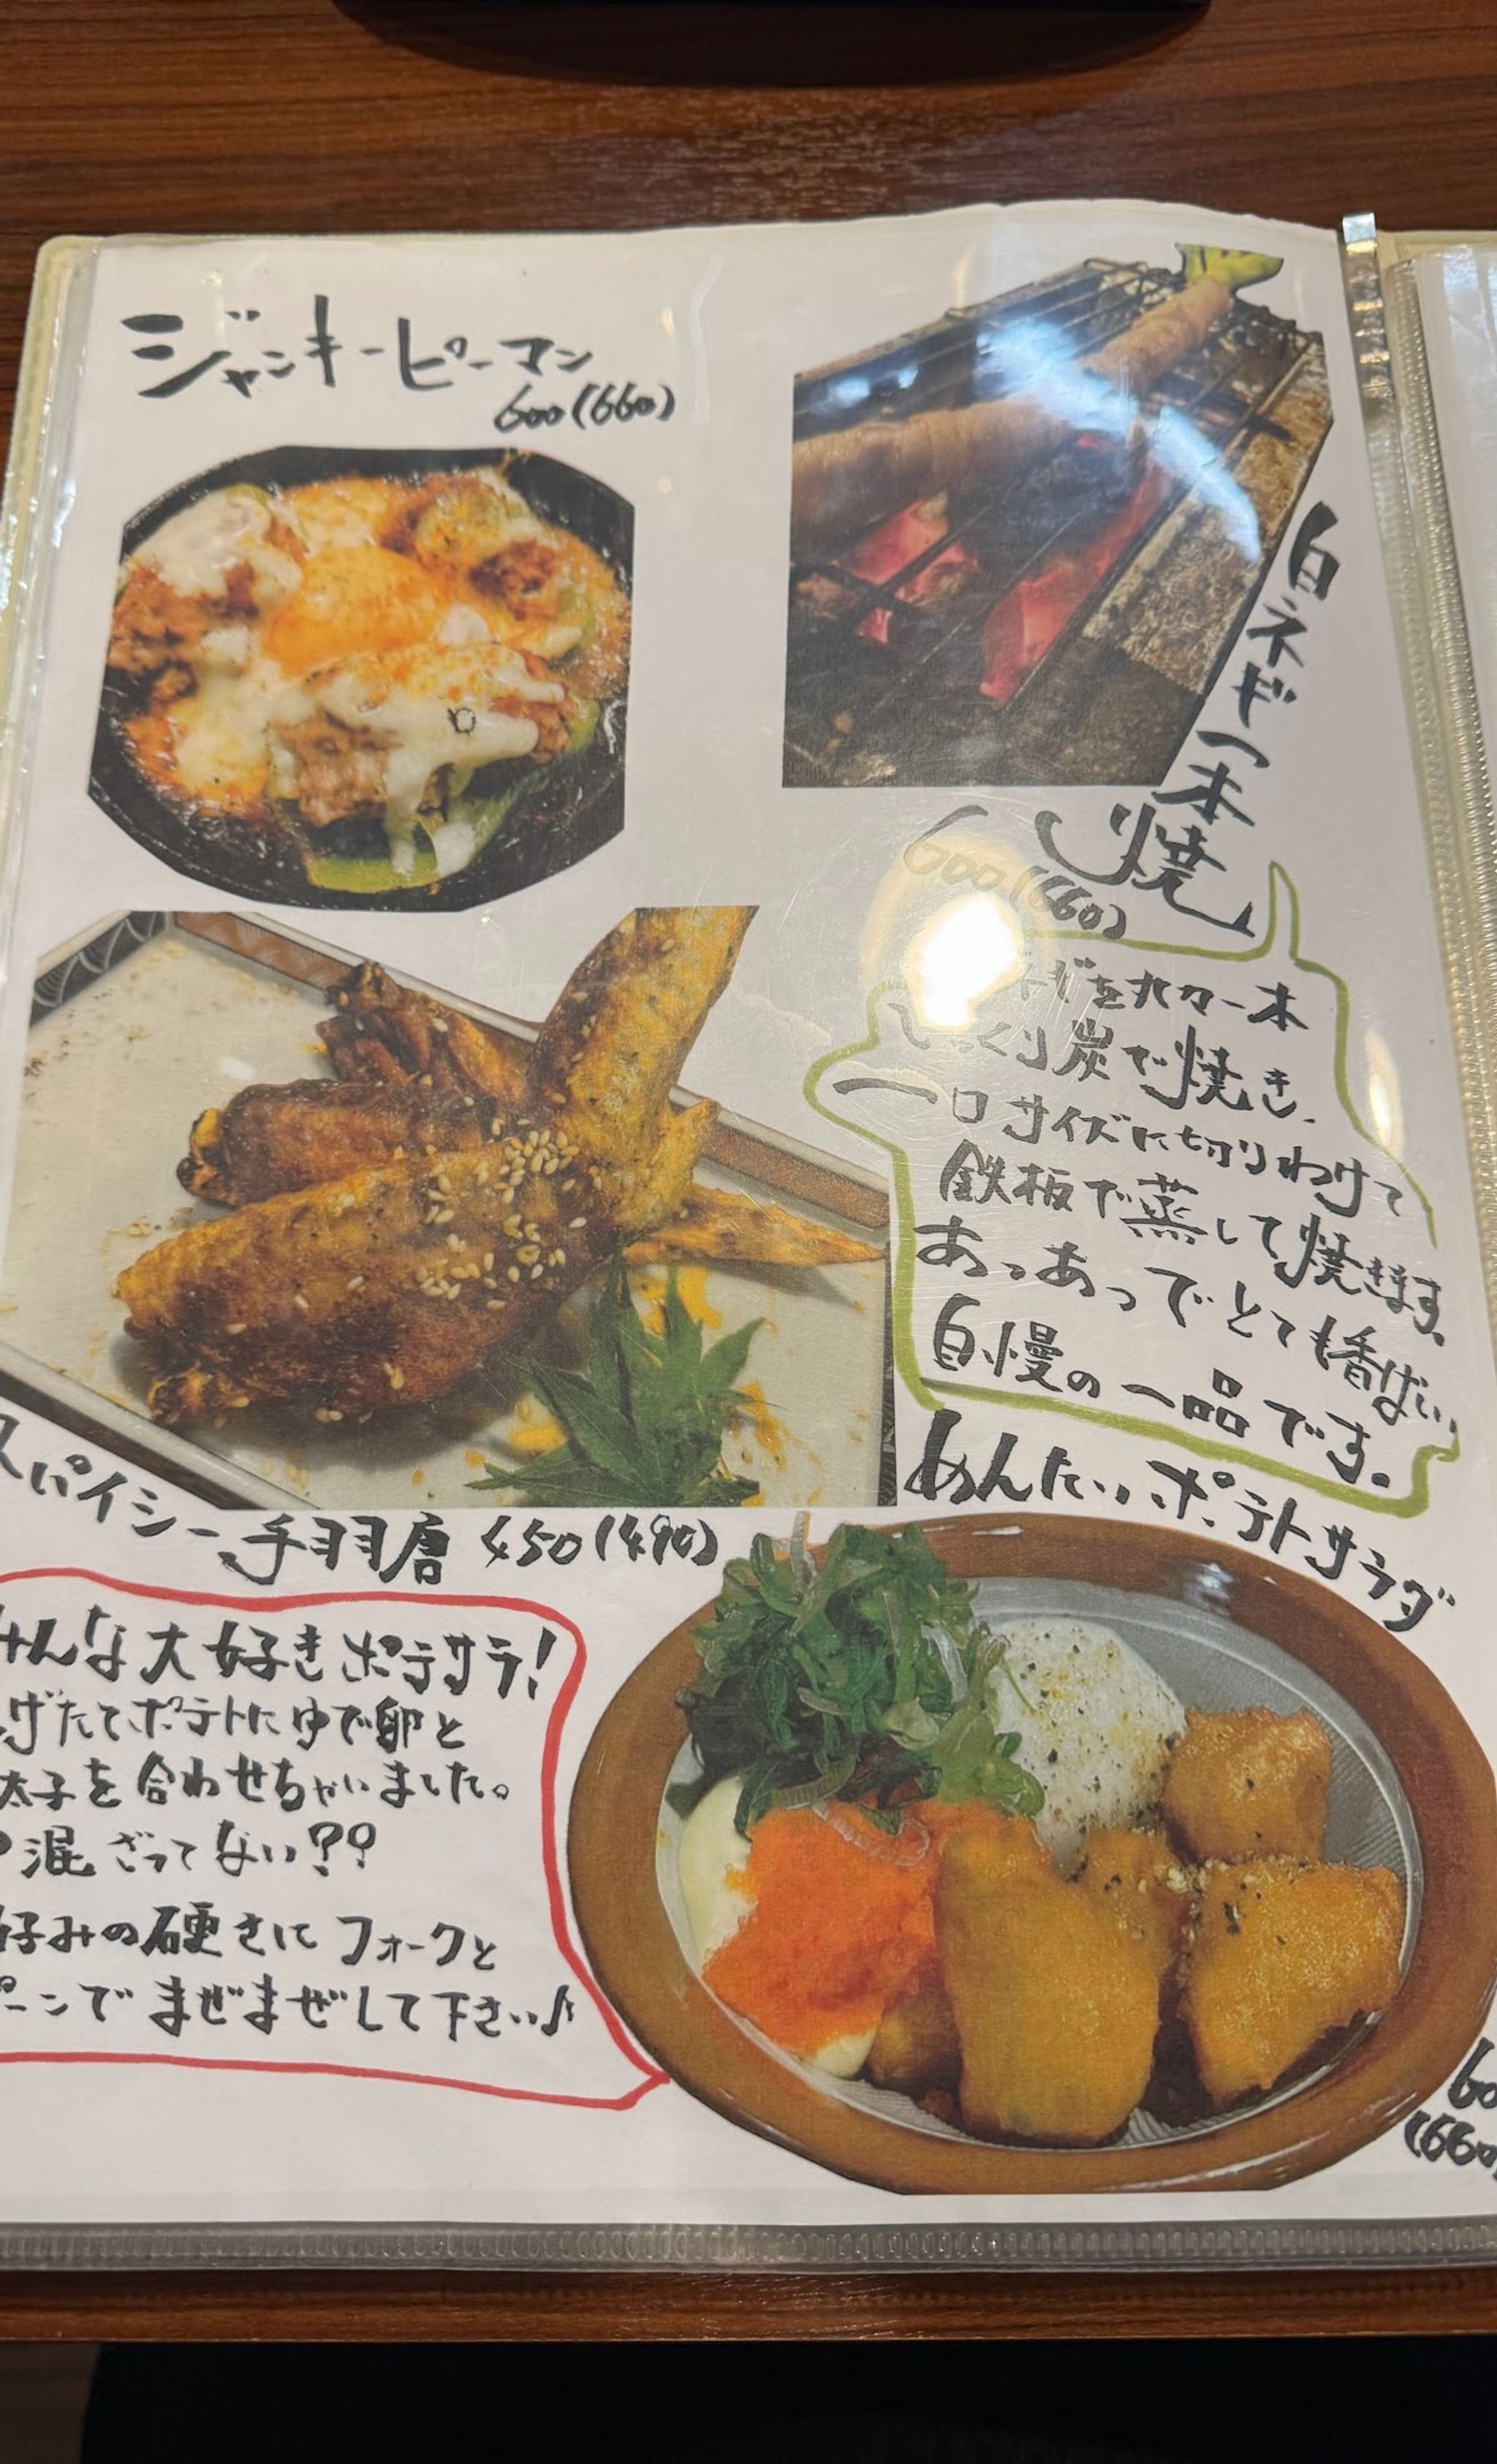 ジャンキーピーマン
600(660)
白ネギ一本焼
600(660)
ネギを丸カ一本
じっくり炭で焼き、
一口サイズに切りわけて
鉄板で蒸して焼きます。
あっあっでとても香ばい、
自慢の一品です。
スパイシー手羽唐 450(490)
めんたいポテトサラダ
みんな大好きポテサラ!
げたてポテトにゆで卵と
太子を合わせちゃいました。
混ざってない??
好みの硬さにフォークと
プーンでまぜまぜして下さい♪
60
(660